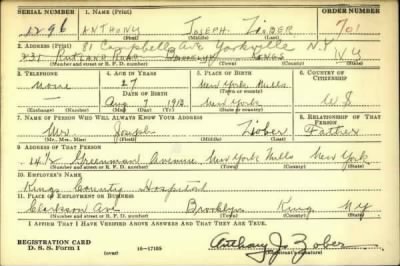 SERIAL NUMBER 1. NAME (Print) ORDER NUMBER
1296 ANTHONY JOSEPH ZIOBER 701
(First) (Middle) (Last)
2. ADDRESS (Print) 81 Campbell Ave Yorkville N.Y.
235 RUTLAND ROAD BROOKLYN KINGS N.Y.
(Number and street or R. F. D. number) (Town) (County) (State)
3. TELEPHONE 4. AGE IN YEARS 5. PLACE OF BIRTH 6. COUNTRY OF CITIZENSHIP
None 27 New York Mills
DATE OF BIRTH (Town or county)
Aug 7 1913 New York U S
(Exchange) (Number) (Mo.) (Day) (Yr.) (State or country)
7. NAME OF PERSON WHO WILL ALWAYS KNOW YOUR ADDRESS 8. RELATIONSHIP OF THAT PERSON
Mr Joseph Ziober Father
(Mr., Mrs., Miss) (First) (Middle) (Last)
9. ADDRESS OF THAT PERSON
Greenman Avenue New York Mills New York
(Number and street or R. F. D. number) (Town) (County) (State)
10. EMPLOYER'S NAME
Kings County Hospital
11. PLACE OF EMPLOYMENT OR BUSINESS
Clarkson Ave Brooklyn King NY
(Number and street or R. F. D. number) (Town) (County) (State)
I AFFIRM THAT I HAVE VERIFIED ABOVE ANSWERS AND THAT THEY ARE TRUE.
REGISTRATION CARD
D. S. S. Form 1 (over) 16—17105 Anthony J. Ziober
(Registrant's signature)